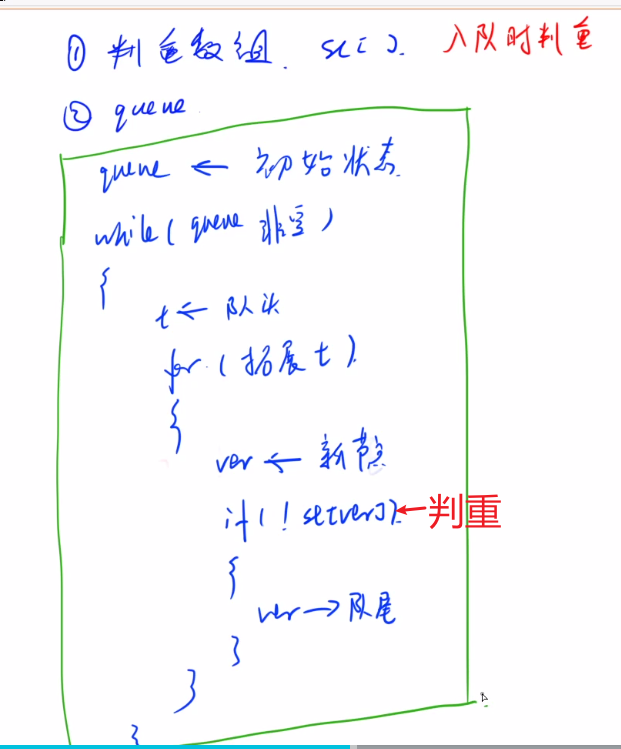 ① 判重数组. st[]. 入队时判重
② queue
queue ← 初始状态
while(queue 非空)
{
t ← 队头
for (拓展 t)
{
ver ← 新节点
if(!st[ver]) ← 判重
{
ver → 队尾
}
}
}